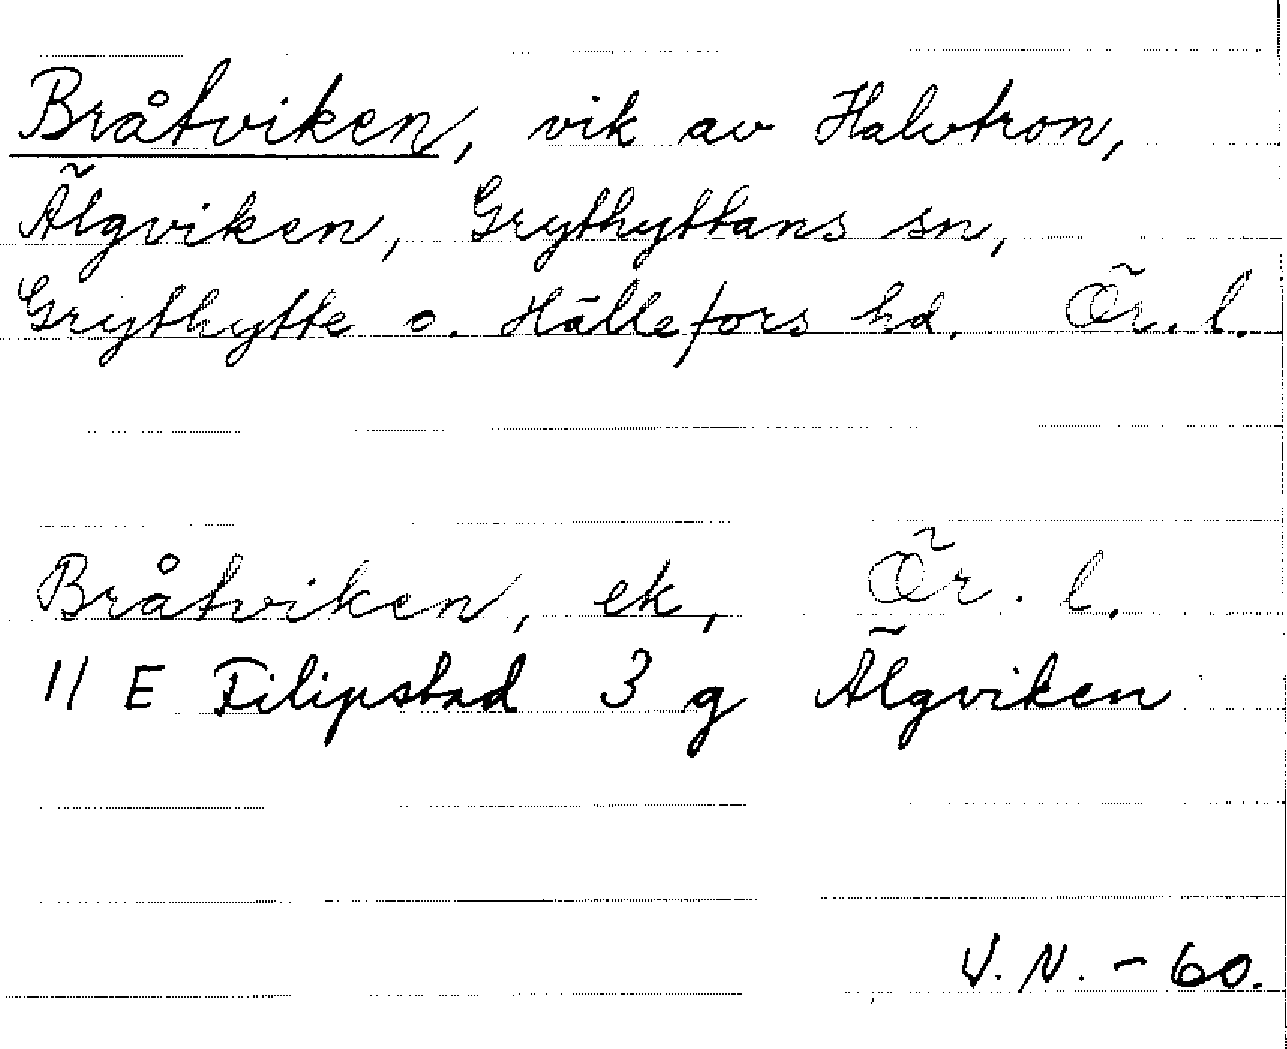 Bråtviken, vik av Halvtron,
Älgviken, Grythyttans sn,
Grythytte o. Hällefors hd. Ör. l.
Bråtviken, ek, Ör. l.
11 E Filipstad 3 g Älgviken
V. N. - 60.